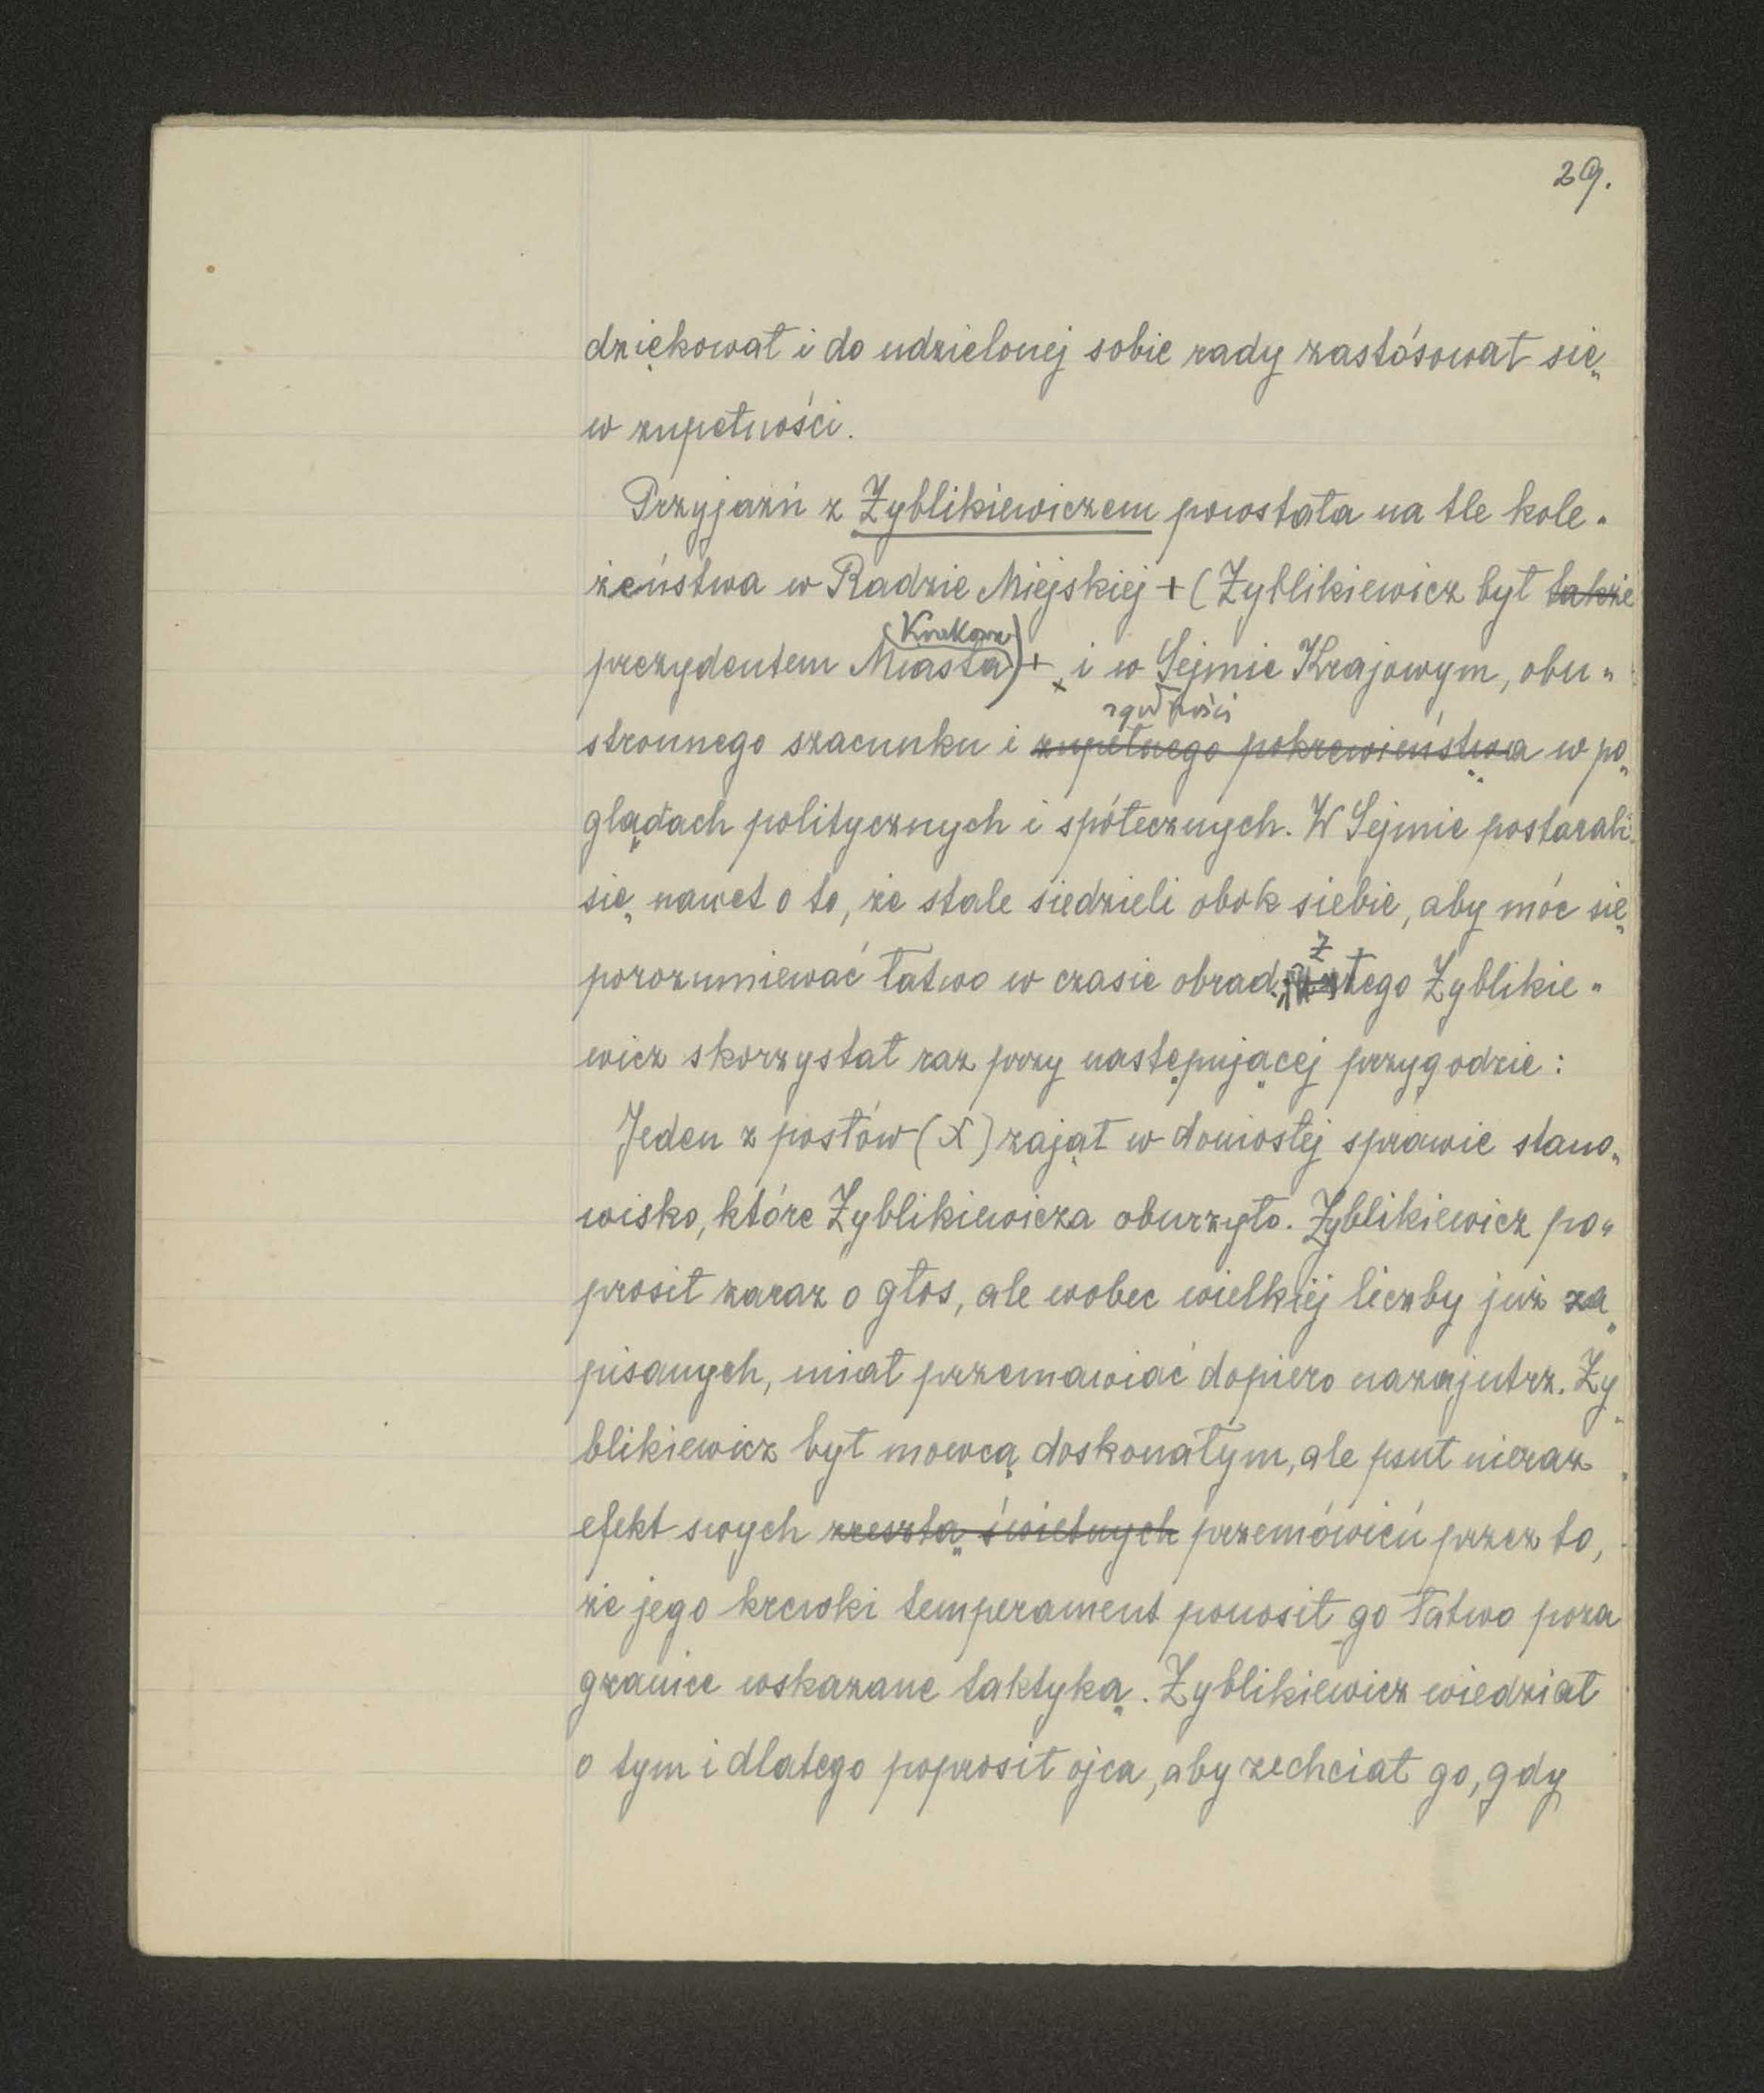 29.
dziękował i do udzielonej sobie rady zastósował się
w zupełności.
Przyjaźń z Zyblikiewiczem powstała na tle kole-
żeństwa w Radzie Miejskiej + (Zyblikiewicz był także
Krakowa
prezydentem Miasta) + i w Sejmie Krajowym, obu-
zgodności
stronnego szacunku i zupełnego pokrewieństwa w po-
glądach politycznych i spółecznych. W Sejmie postarali
się nawet o to, że stale siedzieli obok siebie, aby móc się
z
porozumiewać łatwo w czasie obrad; tego Zyblikie-
wicz skorzystał raz przy następującej przygodzie:
Jeden z posłów (X) zajął w doniosłej sprawie stano-
wisko, które Zyblikiewicza oburzyło. Zyblikiewicz po-
prosił zaraz o głos, ale wobec wielkiej liczby już za-
pisanych, miał przemawiać dopiero nazajutrz. Zy-
blikiewicz był mowcą doskonałym, ale psuł nieraz
efekt swych zresztą świetnych przemówień przez to,
że jego krewki temperament ponosił go łatwo poza
granice wskazane taktyką. Zyblikiewicz wiedział
o tym i dlatego poprosił ojca, aby zechciał go, gdy